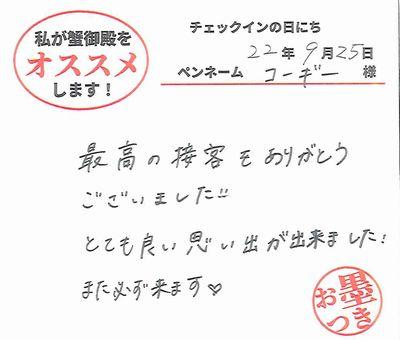 私が蟹御殿を
オススメ
します！
チェックインの日にち
22年9月25日
ペンネーム コーギー 様
最高の接客をありがとう
ございました!!
とても良い思い出が出来ました!
また必ず来ます♡
お墨つき